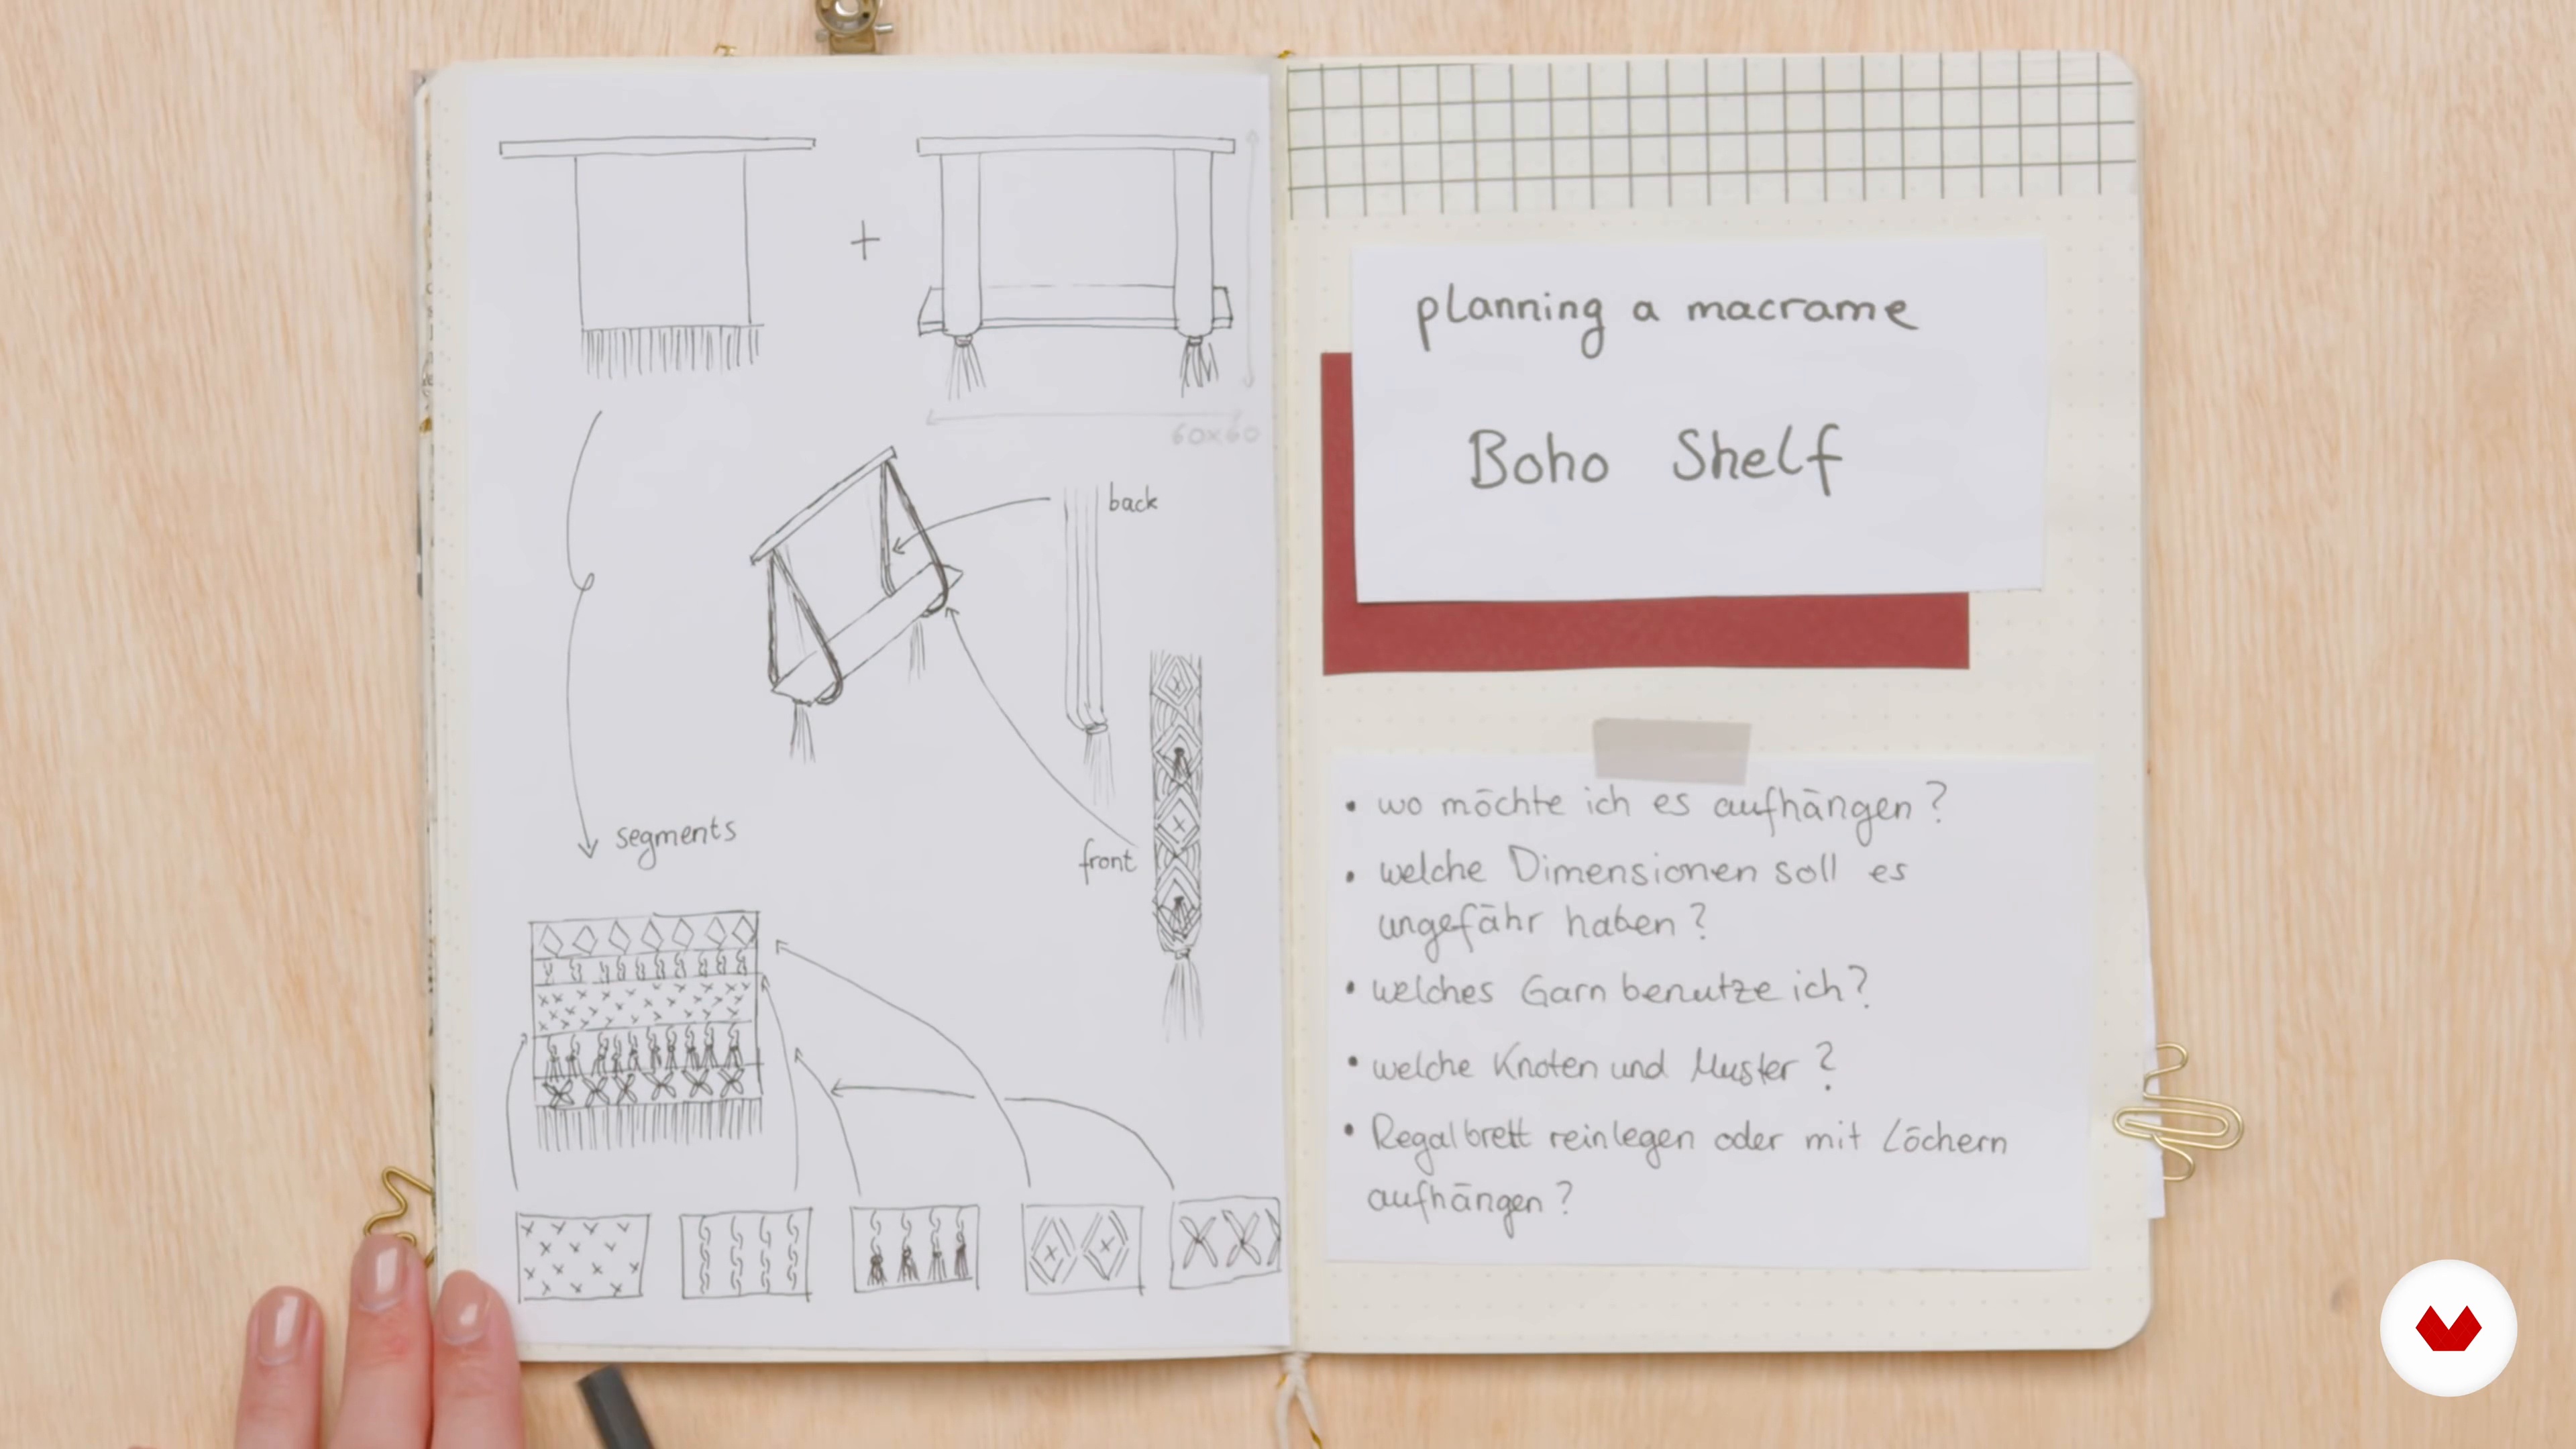 60x60
back
segments
front
planning a macrame
Boho Shelf
• wo möchte ich es aufhängen?
• welche Dimensionen soll es
ungefähr haben?
• welches Garn benutze ich?
• welche Knoten und Muster?
• Regalbrett reinlegen oder mit Löchern
aufhängen?